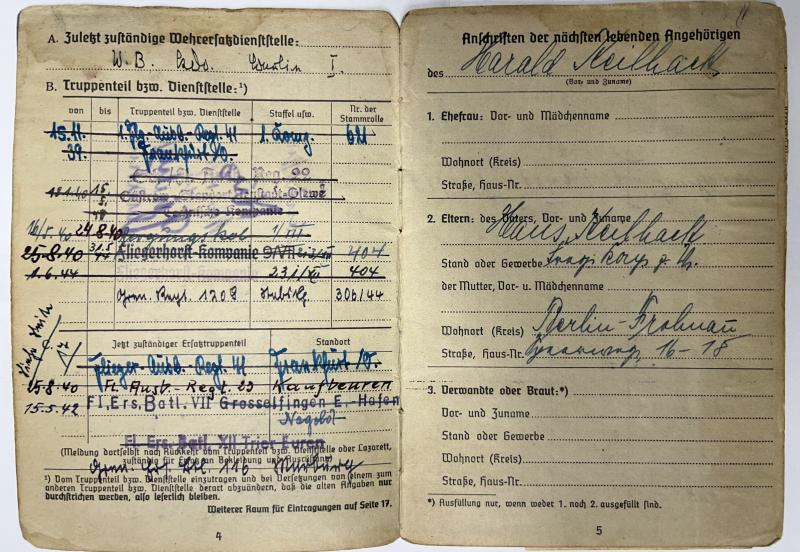 A. Zuletzt zuständige Wehrersatzdienststelle:
W. B. Kdo. Berlin I.
B. Truppenteil bzw. Dienststelle:¹)
von bis Truppenteil bzw. Dienststelle Staffel usw. Nr. der Stammrolle
15.11. 1. Flg.-Ausb.-Regt. 41 1. Komp. 621
39. Frankfurt/O.
16/5.40 24.8.40 1/III
25-8.40 31.5 44 Fliegerhorst-Kompanie 9/VII 404
1.6.44 Fliegerhorst-Kompanie 23 /XII 404
Gren. Regt. 1208 306/44
Jetzt zuständiger Ersatztruppenteil Standort
Flieger-Ausb.-Regt. 41 Frankfurt/O.
25-8.40 Fl. Ausb.-Regt. 23 Kaufbeuren
15.5.42 Fl, Ers, Batl. VII Grosselfingen E.-Hafen
Nagold
Fl. Ers. Batl. XII Trier Euren
(Meldung dortselbst nach Rückkehr vom Truppenteil bzw. Dienststelle oder Lazarett,
zuständig für Ersatz an Bekleidung und Ausrüstung)
Gren. Ers. Btl. 116 Marburg
¹) Vom Truppenteil bzw. Dienststelle einzutragen und bei Versetzungen von einem zum
anderen Truppenteil bzw. Dienststelle derart abzuändern, daß die alten Angaben nur
durchstrichen werden, also leserlich bleiben.
Weiterer Raum für Eintragungen auf Seite 17.
4
Anschriften der nächsten lebenden Angehörigen
des Harald Keilhack
(Vor- und Zuname)
1. Ehefrau: Vor- und Mädchenname
Wohnort (Kreis)
Straße, Haus-Nr.
2. Eltern: des Vaters, Vor- und Zuname
Hans Keilhack
Stand oder Gewerbe
der Mutter, Vor- u. Mädchenname
Wohnort (Kreis) Berlin-Frohnau
Straße, Haus-Nr. 16-18
3. Verwandte oder Braut:*)
Vor- und Zuname
Stand oder Gewerbe
Wohnort (Kreis)
Straße, Haus-Nr.
*) Ausfüllung nur, wenn weder 1. noch 2. ausgefüllt sind.
5